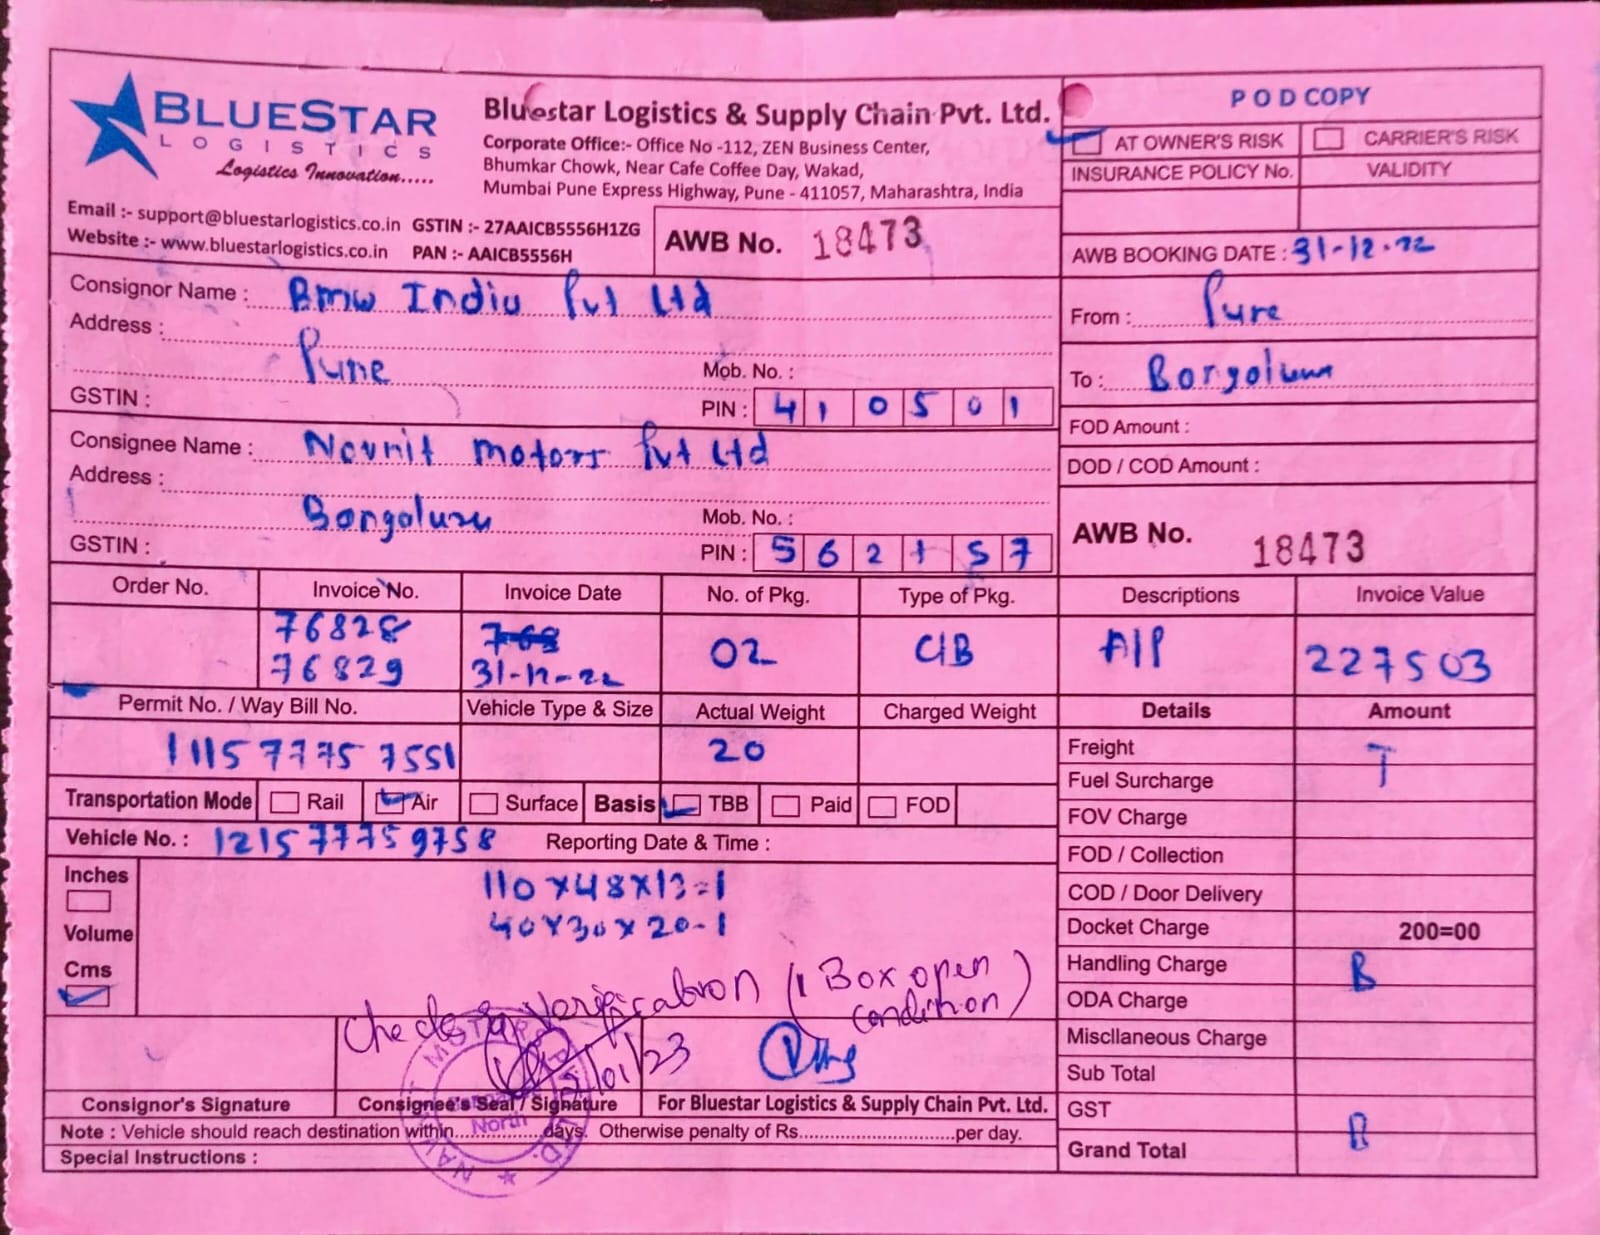 BLUESTAR
LOGISTICS
Logistics Innovation.....
Bluestar Logistics & Supply Chain Pvt. Ltd.
Corporate Office:- Office No -112, ZEN Business Center,
Bhumkar Chowk, Near Cafe Coffee Day, Wakad,
Mumbai Pune Express Highway, Pune - 411057, Maharashtra, India
Email :- support@bluestarlogistics.co.in GSTIN :- 27AAICB5556H1ZG
Website :- www.bluestarlogistics.co.in PAN :- AAICB5556H
AWB No. 18473
POD COPY
AT OWNER'S RISK CARRIER'S RISK
INSURANCE POLICY No. VALIDITY
AWB BOOKING DATE : 31-12-22
Consignor Name : Bmw India Pvt Ltd
Address :
Pune
Mob. No. :
GSTIN :
PIN : 410501
From : Pune
To :
FOD Amount :
DOD / COD Amount :
Consignee Name : Navnit motors Pvt Ltd
Address :
Bangaluru
Mob. No. :
GSTIN :
PIN : 562157
AWB No. 18473
Order No. Invoice No. Invoice Date No. of Pkg. Type of Pkg. Descriptions Invoice Value
76828
76829 31-12-22 02 C/B A/P 227503
Permit No. / Way Bill No. Vehicle Type & Size Actual Weight Charged Weight Details Amount
1115 7775 7551 20
Freight T
Fuel Surcharge
Transportation Mode Rail Air Surface Basis TBB Paid FOD
FOV Charge
Vehicle No. : 1215 7775 9758 Reporting Date & Time :
FOD / Collection
Inches
Volume
Cms
110x48x13=1
40x30x20-1
COD / Door Delivery
Docket Charge 200=00
Handling Charge B
ODA Charge
Miscllaneous Charge
Sub Total
GST
Grand Total
verification (1 Box open
condition)
01/23
Consignor's Signature Consignee's Seal / Signature For Bluestar Logistics & Supply Chain Pvt. Ltd.
North
Note : Vehicle should reach destination within..............days. Otherwise penalty of Rs..........................per day.
Special Instructions :